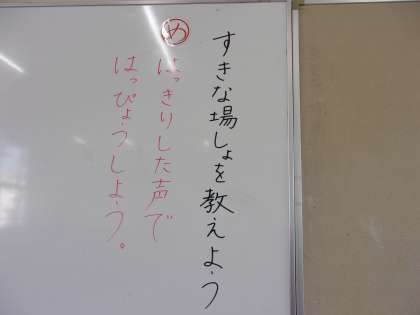 すきな場しょを教えよう
め はっきりした声で
はっぴょうしよう。